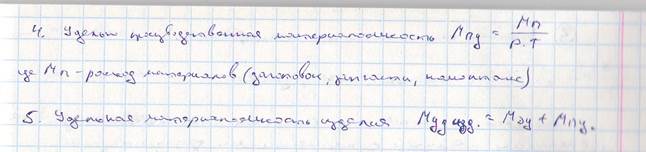 4. Удельн производственная материалоемкость Mпу = Mп / P.T
где Mп - расход материалов (заготовок, запчасти,
5. Удельная материалоемкость изделия Mуд изд. = Mэу + Mпу.